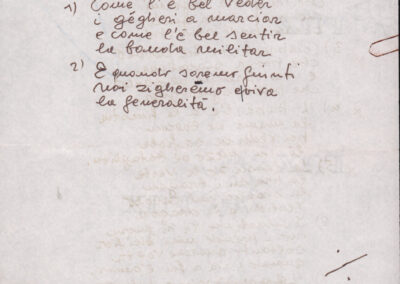 1) Come l'è bel veder
i gégheri a marciar
e come l'è bel sentir
la banda militar
2) E quando saremo giunti
noi zigheremo eviva
la generalità.